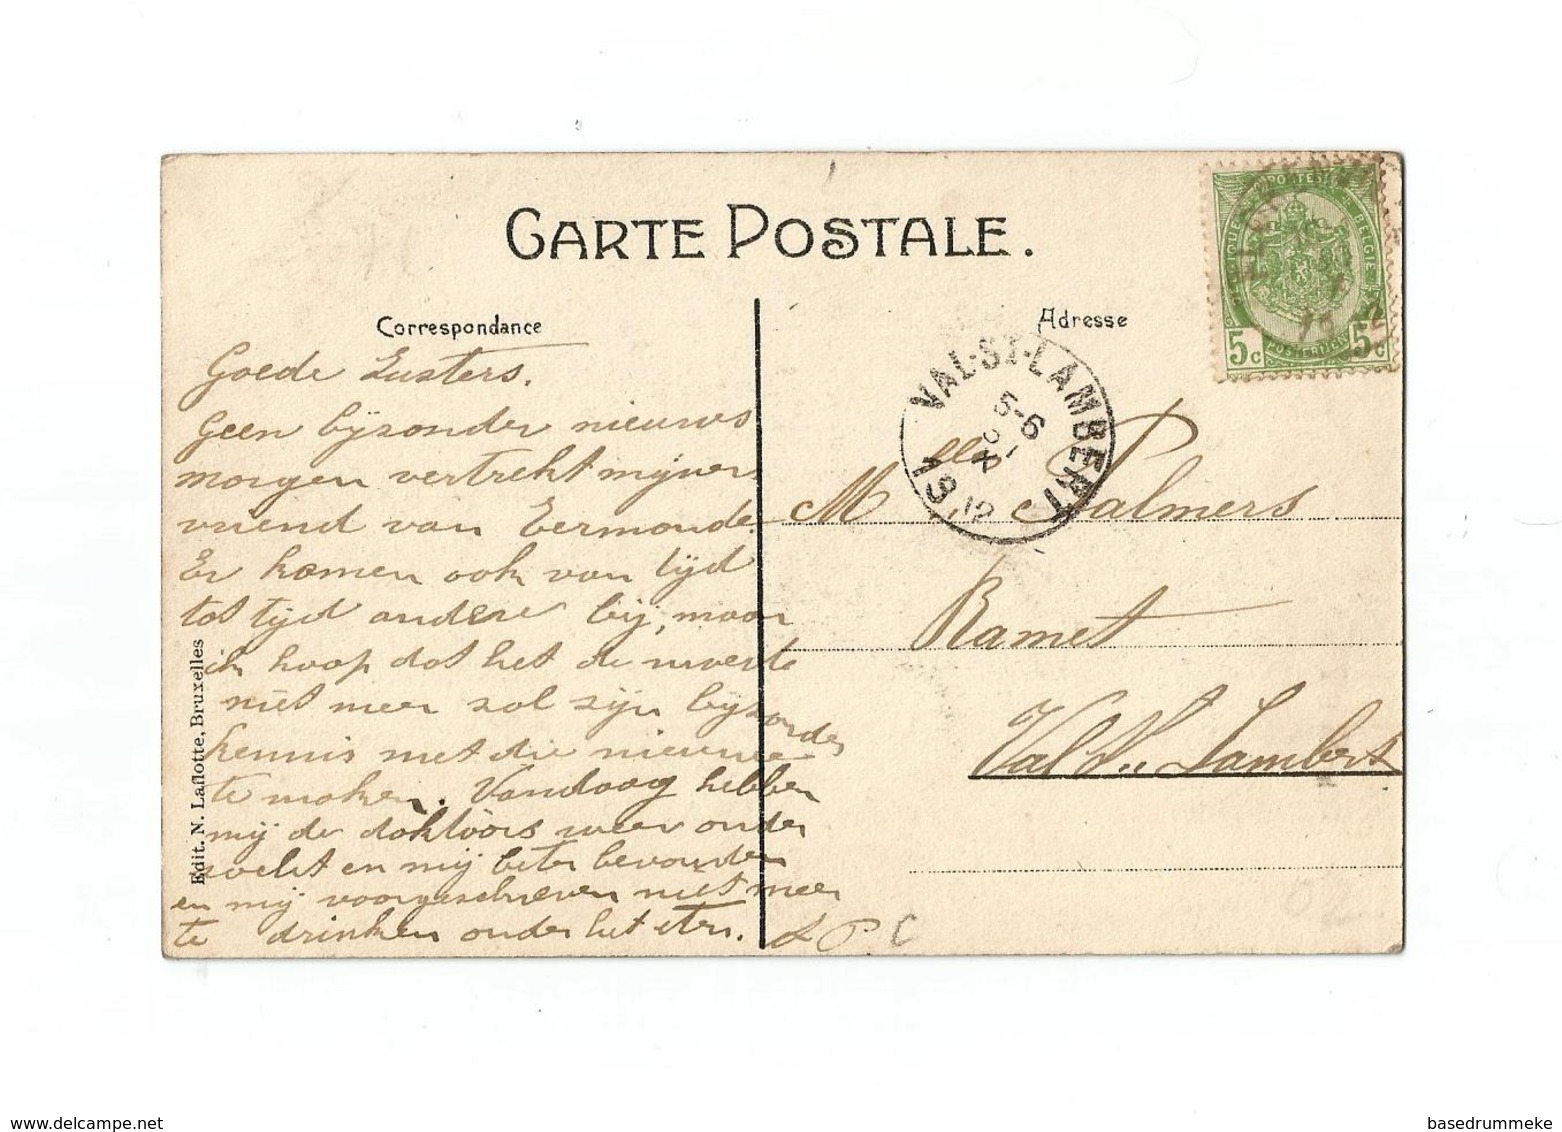 CARTE POSTALE.
Correspondance
Goede Zusters.
Geen bijzonder nieuws
morgen vertrekt mijner
vriend van Eermonde.
Er komen ook van tijd
tot tijd andere bij, maar
ik hoop dat het de moeite
niet meer zal zijn bijzonder
kennis met die nieuwe
te maken. Vandaag hebben
mij de doktoors weer onder
zocht en mij beter bevonden
en mij voorgeschreven niet meer
te drinken onder het eten.
L P C
Edit. N. Laflotte, Bruxelles
Adresse
Mlle Palmers
Ramet
Val St. Lambert
VAL-ST-LAMBERT
5-6
1912
POSTES
BELGIQUE BELGIE
POSTERIJEN
5c 5c
62
www.delcampe.net
basedrummeke